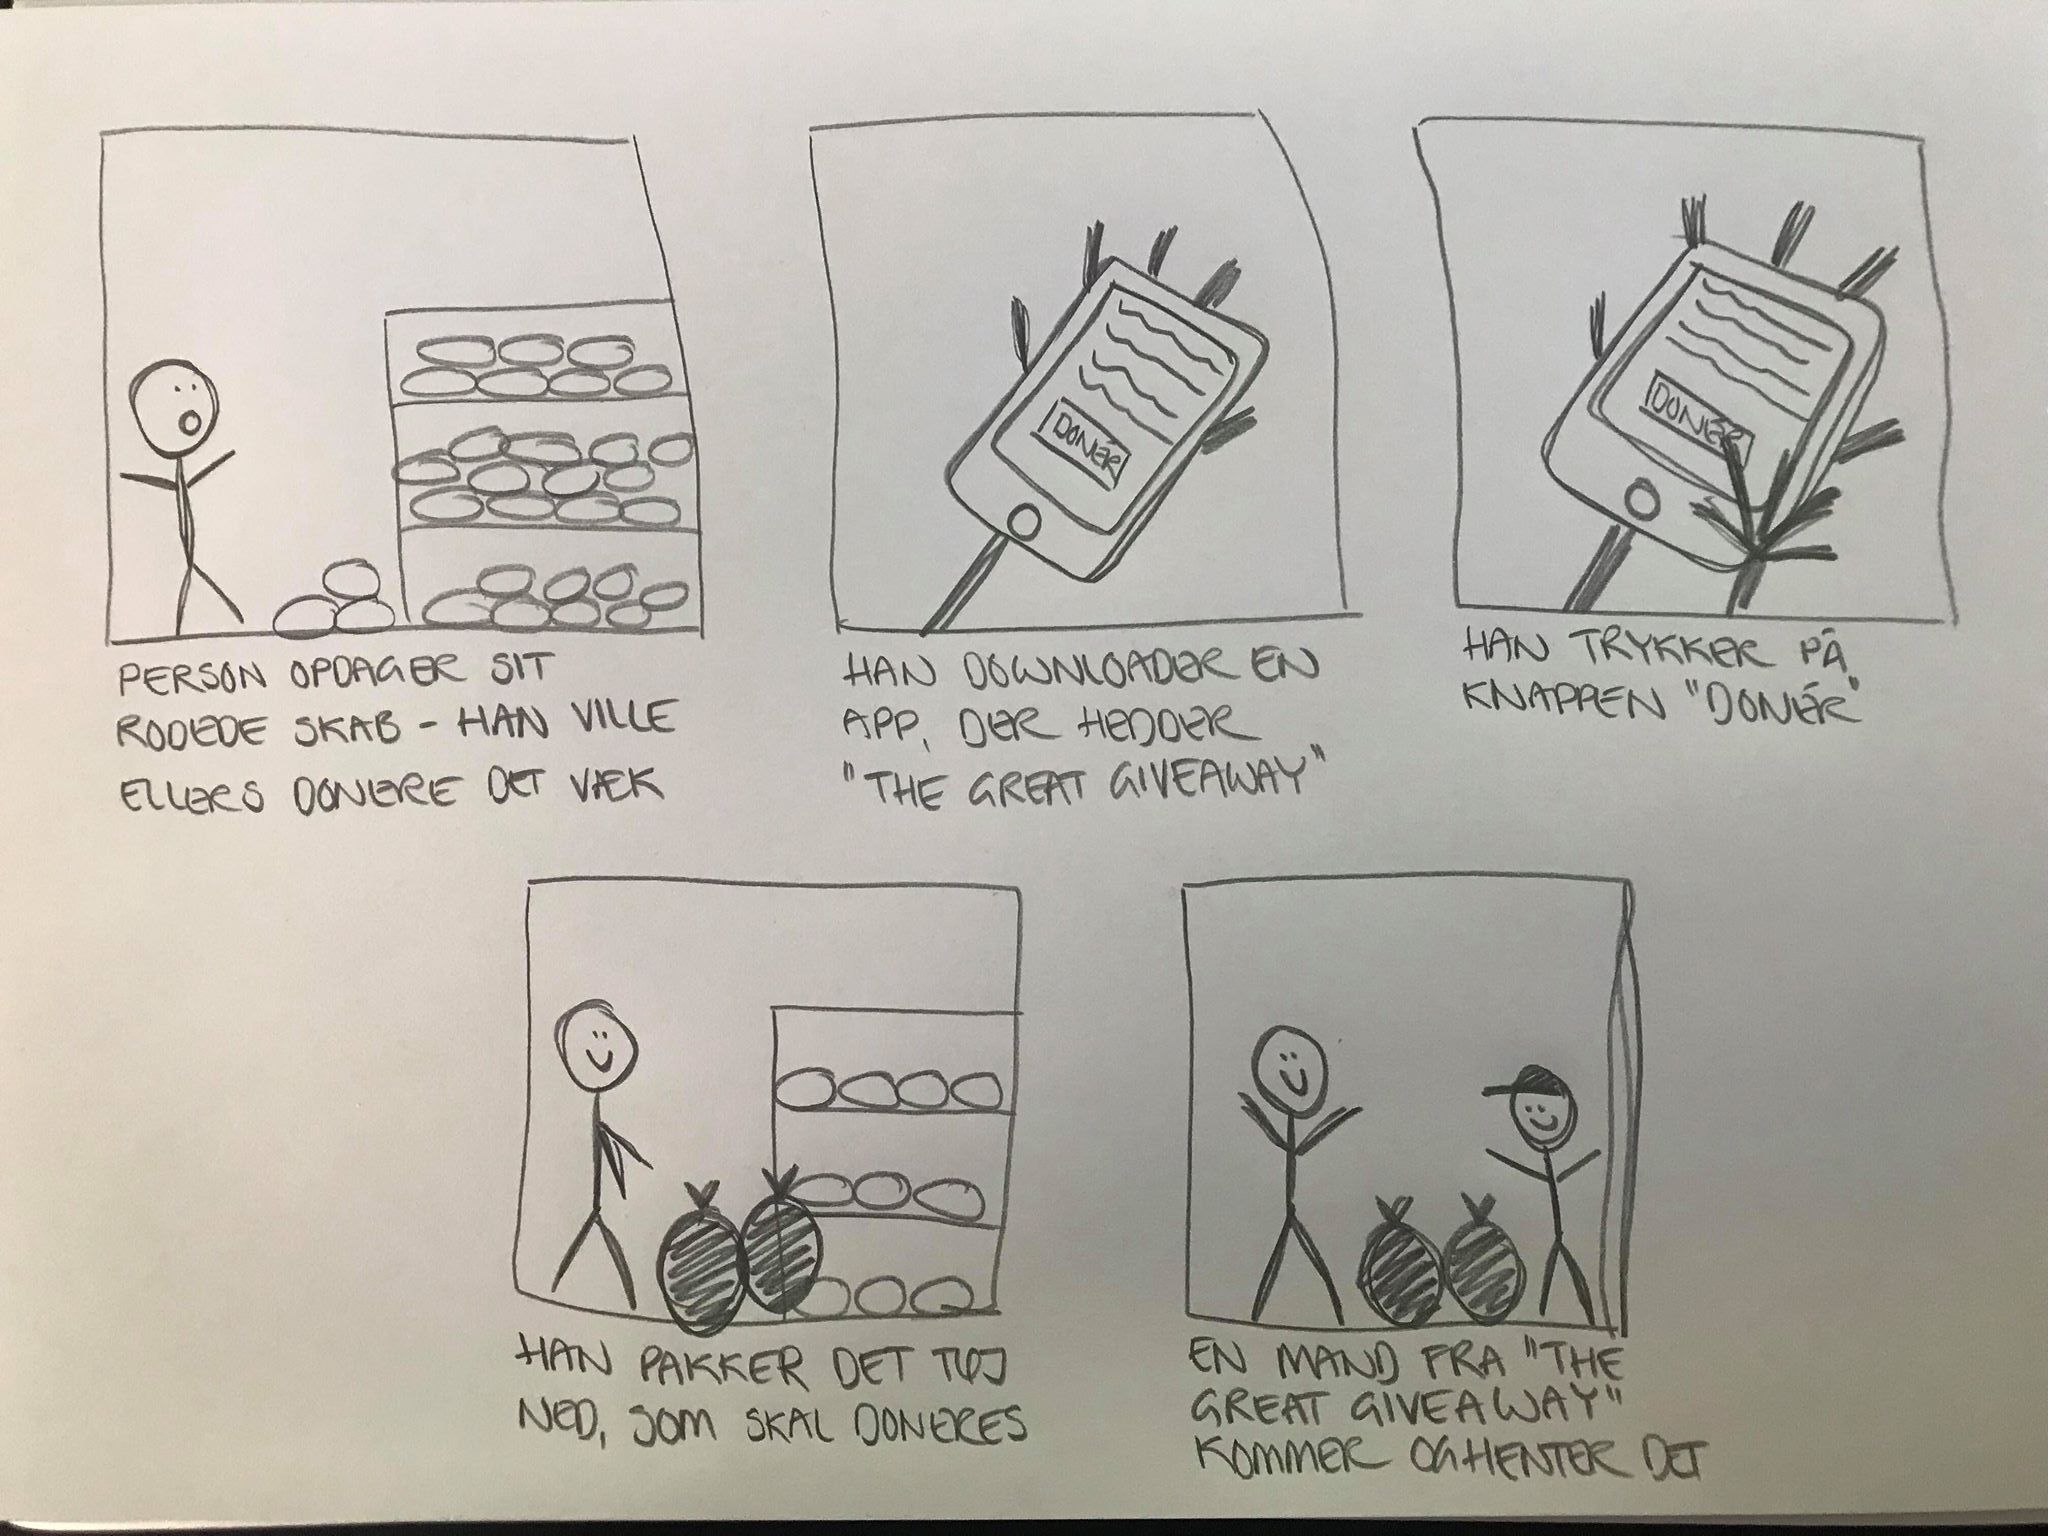 DONÉR
DONÉR
PERSON OPDAGER SIT
RODEDE SKAB - HAN VILLE
ELLERS DONERE DET VÆK
HAN DOWNLOADER EN
APP, DER HEDDER
"THE GREAT GIVEAWAY"
HAN TRYKKER PÅ
KNAPPEN "DONÉR"
HAN PAKKER DET TØJ
NED, SOM SKAL DONERES
EN MAND FRA "THE
GREAT GIVEAWAY"
KOMMER OG HENTER DET